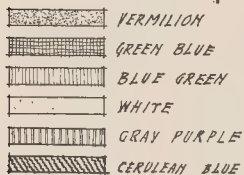 VERMILION
GREEN BLUE
BLUE GREEN
WHITE
GRAY PURPLE
CERULEAN BLUE